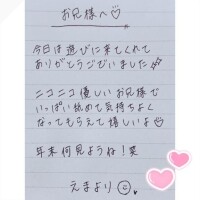 お兄様へ♡
今日は遊びに来てくれて
ありがとうございました
ニコニコ優しいお兄様で
いっぱい舐めて気持ちよく
なってもらえて嬉しいよ♡
年末何見ようね!笑
えまより